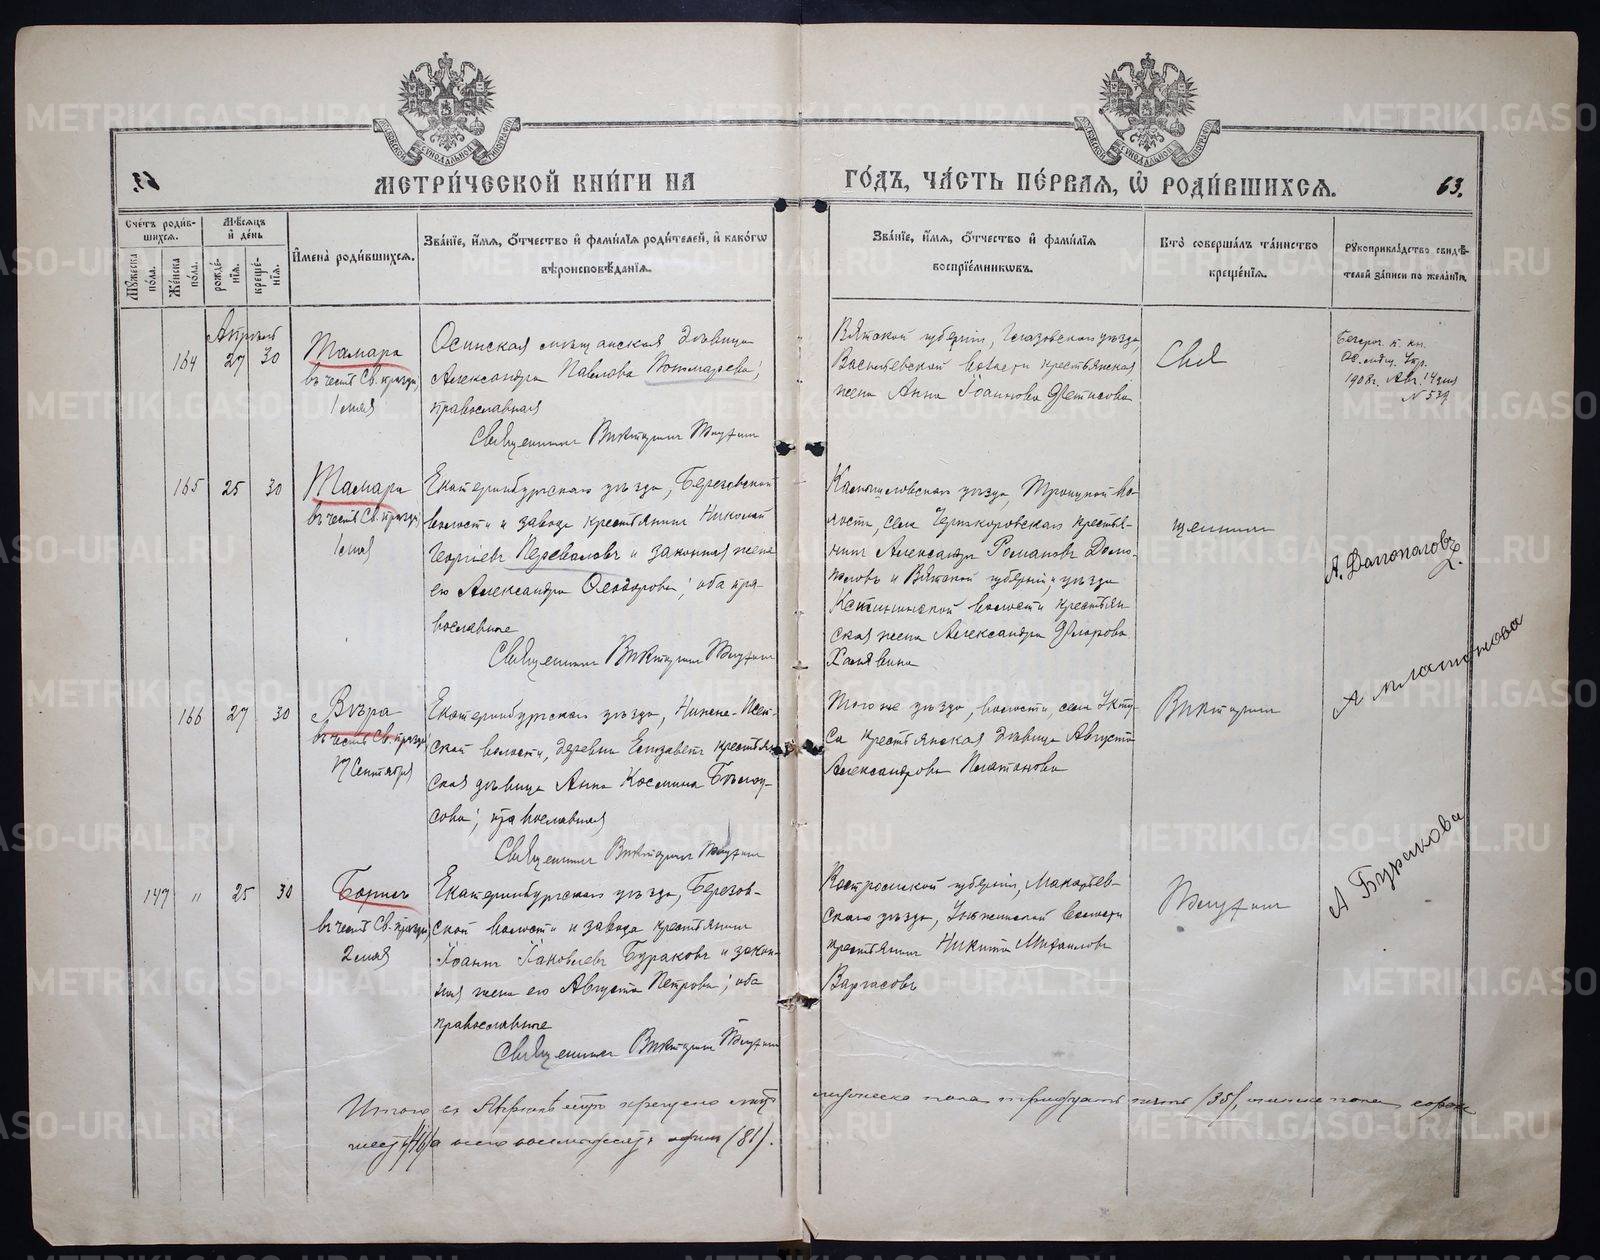 МОСКОВСКОЙ СѴНОДАЛЬНОЙ ТИПОГРАФІИ
МОСКОВСКОЙ СѴНОДАЛЬНОЙ ТИПОГРАФІИ
МЕТРИ́ЧЕСКОЙ КНИ́ГИ НА
ГО́ДЪ, ЧА́СТЬ ПЕ́РВАЯ, Ѡ҆ РОДИ́ВШИХСЯ.
63.
Сче́тъ роди́в-
шихся.
Мѣ́сяцъ
и҆ де́нь
И҆мена̀ роди́вшихся.
Зва́нїе, и҆́мя, ѻ҆́тчество и҆ фами́лїя роди́телей, и҆ како́гѡ
вѣроисповѣ́данїя.
Мꙋ́жеска по́ла.
Же́нска по́ла.
рожде́нїя.
креще́нїя.
Зва́нїе, и҆́мя, ѻ҆́тчество и҆ фами́лїя
воспрїе́мникѡвъ.
Кто̀ соверша́лъ та́инство
креще́нїя.
Рꙋкоприкла́дство свидѣ́-
телей за́писи по жела́нїю.
Апрѣль
164 27 30
Тамара
въ честь Св. праздн.
1 мая
Осинская мѣщанская дѣвица
Александра Павлова Пономарева;
православная
Священникъ Викторинъ
Вятской губерніи, Глазовскаго уѣзда,
Васильевской волости крестьянская
жена Анна Іоаннова Фетисова
Свя
1908 г. Авг. 14 дня
165 25 30
Тамара
въ честь Св. праздн.
1 мая
Екатеринбургскаго уѣзда, Березовской
волости и завода крестьянинъ Николай
Георгіевъ Переваловъ и законная жена
его Александра Ѳеодорова; оба пра-
вославные
Священникъ Викторинъ
Камышловскаго уѣзда, Троицкой во-
лости, села Чернокоровскаго крестья-
нинъ Александръ Романовъ Долго-
половъ и Вятской губерніи и уѣзда
волости крестьян-
ская жена Александра
Халявина
щенникъ
А. Долгополовъ
166 27 30
Вѣра
въ честь Св. праздн.
17 Сентября
Екатеринбургскаго уѣзда, Нижне-Исет-
ской волости, деревни Елизаветъ крестьян-
ская дѣвица Анна Космина Бѣлоу-
сова; православная
Священникъ Викторинъ
Того же уѣзда, волости, села Укту-
са крестьянская дѣвица Августа
Александрова Платонова
Викторинъ
А Платонова
147 " 25 30
Борисъ
въ честь Св. праздн.
2 мая
Екатеринбургскаго уѣзда, Березов-
ской волости и завода крестьянинъ
Іоаннъ Іаковлевъ Бураковъ и закон-
ная жена его Августа Петрова; оба
православные
Священникъ Викторинъ
Костромской губерніи, Макарьев-
скаго уѣзда, волости
крестьянинъ Никита Михайловъ
Варгасовъ
А Буракова
Итого въ Апрѣлѣ мѣс. крещено
мужеска пола тридцать пять (35), женска пола сорок
шесть (46) а всего восемьдесятъ одинъ (81).
METRIKI.GASO-URAL.RU